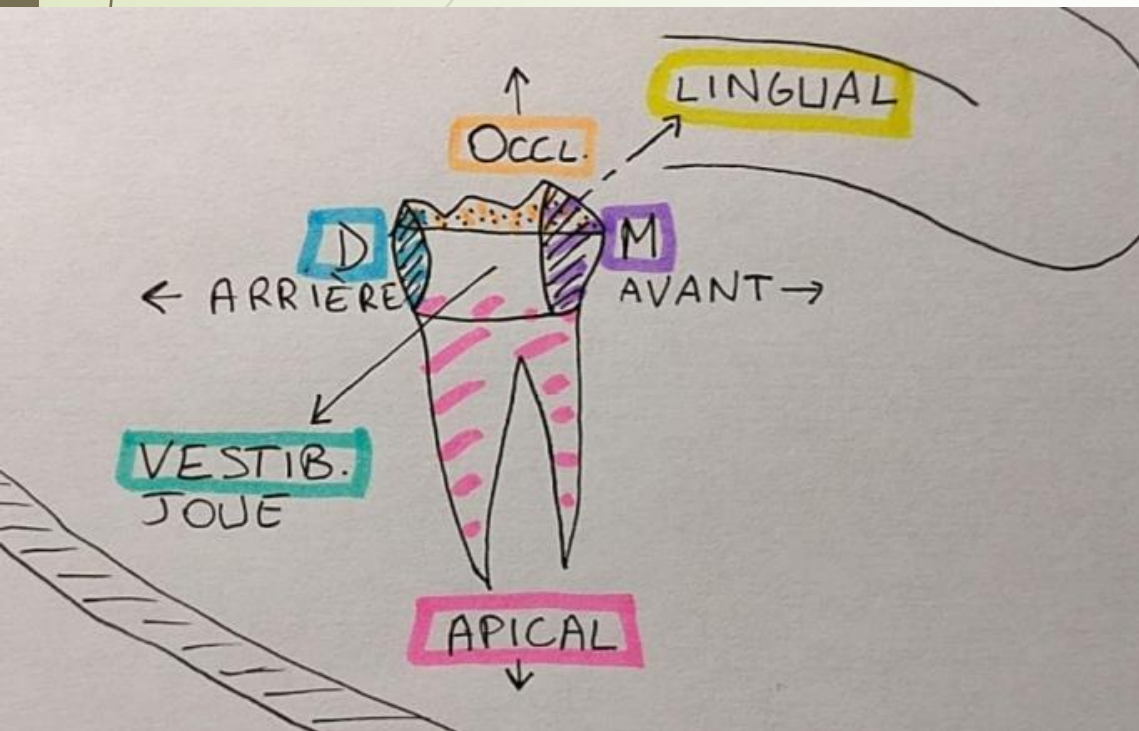 LINGUAL
OCCL.
D
M
← ARRIÈRE
AVANT →
VESTIB.
JOUE
APICAL